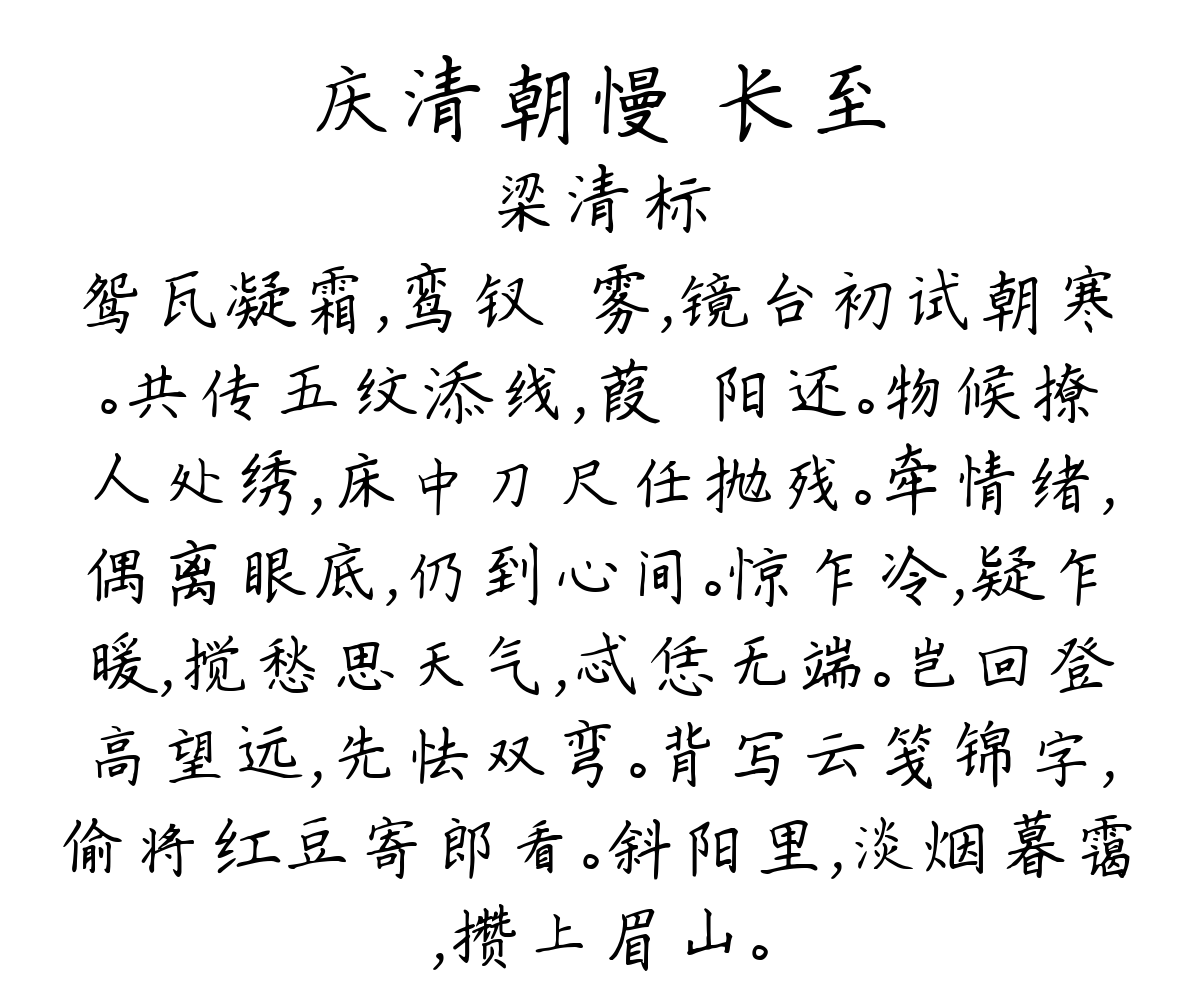 庆清朝慢 长至
梁清标
鸳瓦凝霜,鸾钗 雾,镜台初试朝寒
。共传五纹添线,葭 阳还。物候撩
人处绣,床中刀尺任抛残。牵情绪,
偶离眼底,仍到心间。惊乍冷,疑乍
暖,搅愁思天气,忒恁无端。岂回登
高望远,先怯双弯。背写云笺锦字,
偷将红豆寄郎看。斜阳里,淡烟暮霭
,攒上眉山。